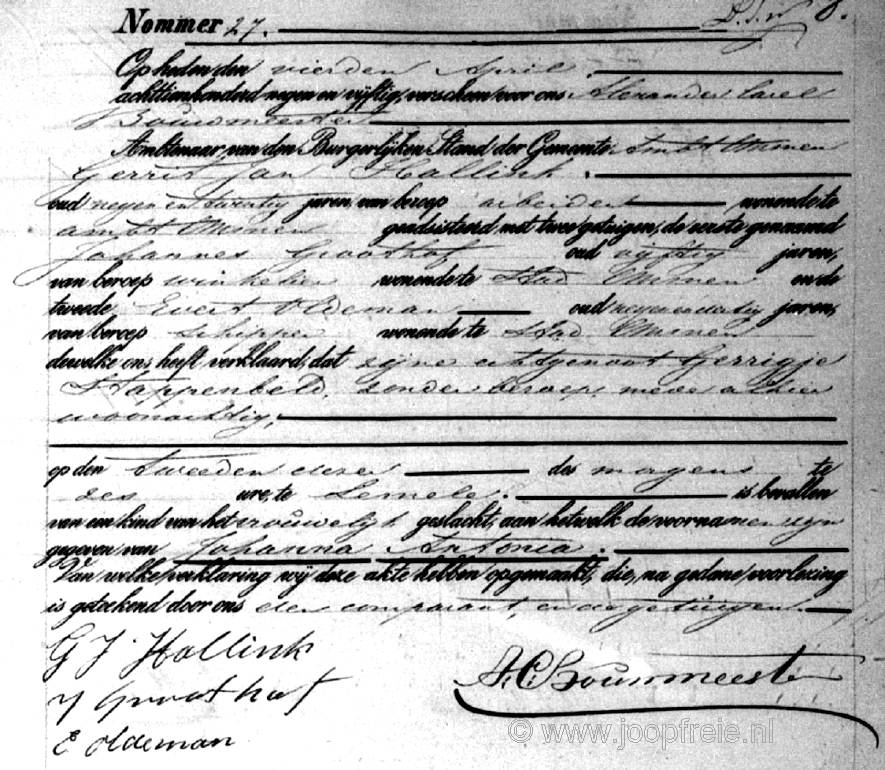 Nommer 27.
Op heden den vierden April
achttienhonderd negen en vijftig, verscheen voor ons Alexander Carel
Bouwmeester
Ambtenaar van den Burgerlijken Stand der Gemeente Ambt Ommen
Gerrit Jan Hallink.
oud negen en twintig jaren, van beroep arbeider wonende te
ambt Ommen geadsisteerd met twee getuigen, de eerste genaamd
Johannes Groothof oud vijftig jaren,
van beroep winkelier wonende te Stad Ommen en de
tweede, Evert Oldeman oud negenendertig jaren,
van beroep schipper wonende te Stad Ommen
dewelke ons heeft verklaard, dat zijne echtgenoot Gerrigje
Stappenbeld, zonder beroep, mede alhier
woonachtig,
op den tweeden dezer des morgens te
zes ure, te Lemele. is bevallen
van een kind van het vrouwelijk geslacht, aan hetwelk de voornamen zijn
gegeven van Johanna Antonia.
Van welke verklaring wij deze akte hebben opgemaakt, die, na gedane voorlezing
is geteekend door ons den comparant, en de getuigen.
G J Hallink
J Groothof
E Oldeman
A. C. Bouwmeester
© www.joopfreie.nl